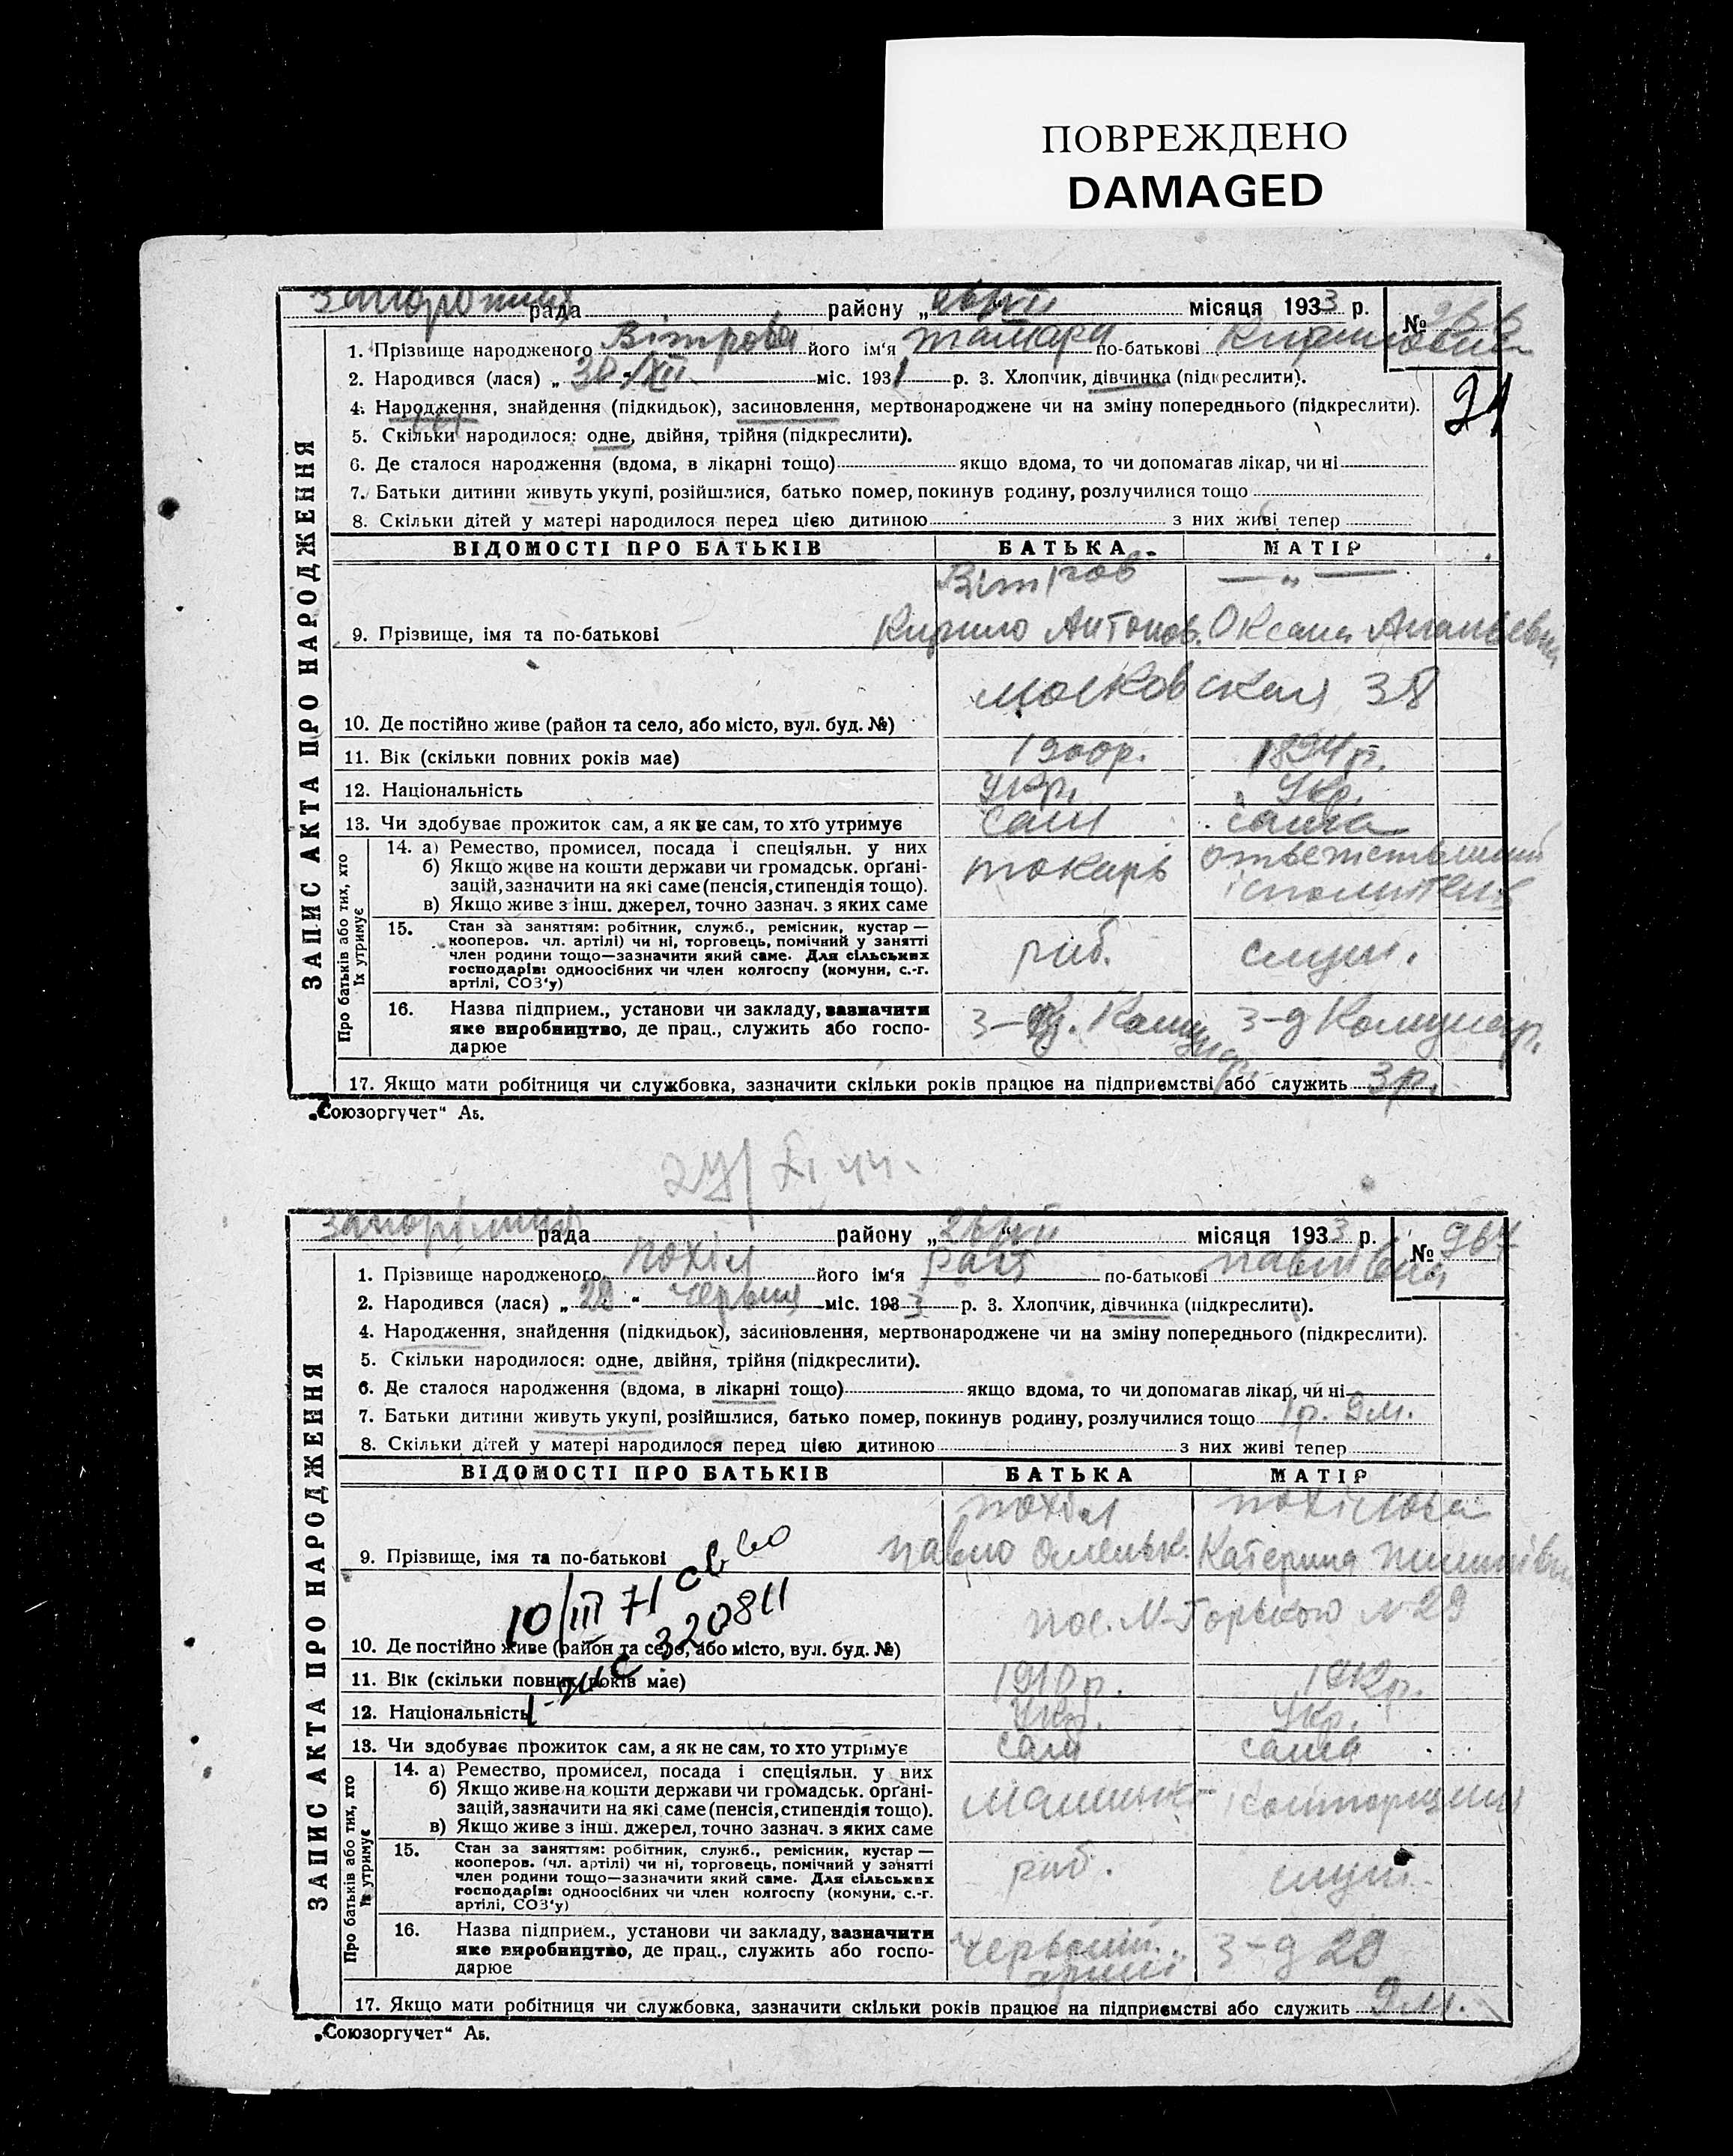 ПОВРЕЖДЕНО
DAMAGED
рада района „26/VII“ місяця 1933 р.
№ 966
1. Прізвище народженого Вітрова його ім‘я Тамара по-батькові Кириловна
2. Народився (лася) „30“ XII міс. 1931 р. 3. Хлопчик, дівчинка (підкреслити).
21
4. Народження, знайдення (підкидьок), засиновлення, мертвонароджене чи на зміну попереднього (підкреслити).
5. Скільки народилося: одне, двійня, трійня (підкреслити).
6. Де сталося народження (вдома, в лікарні тощо) якщо вдома, то чи допомагав лікар, чи ні
7. Батьки дитини живуть укупі, розійшлися, батько помер, покинув родину, розлучилися тощо
8. Скільки дітей у матері народилося перед цією дитиною з них живі тепер
ЗАПИС АКТА ПРО НАРОДЖЕННЯ
ВІДОМОСТІ ПРО БАТЬКІВ БАТЬКА МАТІР
Вітров — „ —
9. Прізвище, імя та по-батькові Кирило Антонов. Оксана
Московская 38
10. Де постійно живе (район та село, або місто, вул. буд. №)
11. Вік (скільки повних років має) 1900р. 1894р.
12. Національність Укр. Укр.
13. Чи здобуває прожиток сам, а як не сам, то хто утримує сам сама
Про батьків або тих, хто їх утримує
14. а) Ремество, промисел, посада і спеціяльн. у них
б) Якщо живе на кошти держави чи громадськ. орґані-
зацій, зазначити на які саме (пенсія, стипендія тощо).
в) Якщо живе з інш. джерел, точно зазнач. з яких саме
токарь
15. Стан за заняттям: робітник, служб., ремісник, кустар —
кооперов. чл. артілі) чи ні, торговець, помічний у занятті
член родини тощо—зазначити який саме. Для сільських
господарів: одноосібних чи член колгоспу (комуни, с.-г.
артілі, СОЗ‘у)
роб. служ.
16. Назва підприєм., установи чи закладу, зазначити
яке виробництво, де прац., служить або госпо-
дарює
з-д. Комунар. з-д Комунар.
17. Якщо мати робітниця чи службовка, зазначити скільки років працює на підприємстві або служить 3р.
„Союзоргучет“ Аб.
рада району „26/VII“ місяця 1933 р.
№ 967
1. Прізвище народженого Похіл його ім‘я Рая по-батькові Павлівна
2. Народився (лася) „22“ червня міс. 1933 р. 3. Хлопчик, дівчинка (підкреслити).
4. Народження, знайдення (підкидьок), засиновлення, мертвонароджене чи на зміну попереднього (підкреслити).
5. Скільки народилося: одне, двійня, трійня (підкреслити).
6. Де сталося народження (вдома, в лікарні тощо) якщо вдома, то чи допомагав лікар, чи ні
7. Батьки дитини живуть укупі, розійшлися, батько помер, покинув родину, розлучилися тощо 1р. 9м.
8. Скільки дітей у матері народилося перед цією дитиною з них живі тепер
ЗАПИС АКТА ПРО НАРОДЖЕННЯ
ВІДОМОСТІ ПРО БАТЬКІВ БАТЬКА МАТІР
Похіл Похілова
9. Прізвище, імя та по-батькові Павло Омельк. Катерина
10/III 71 св во
320811
пос. М-Горького N 29
10. Де постійно живе (район та село, або місто, вул. буд. №)
11. Вік (скільки повних років має) 1910р. 1912р.
12. Національність Укр. Укр.
13. Чи здобуває прожиток сам, а як не сам, то хто утримує сам сама
Про батьків або тих, хто їх утримує
14. а) Ремество, промисел, посада і спеціяльн. у них
б) Якщо живе на кошти держави чи громадськ. орґані-
зацій, зазначити на які саме (пенсія, стипендія тощо).
в) Якщо живе з інш. джерел, точно зазнач. з яких саме
15. Стан за заняттям: робітник, служб., ремісник, кустар —
кооперов. (чл. артілі) чи ні, торговець, помічний у занятті
член родини тощо—зазначити який саме. Для сільських
господарів: одноосібних чи член колгоспу (комуни, с.-г.
артілі, СОЗ‘у)
роб. служ.
16. Назва підприєм., установи чи закладу, зазначити
яке виробництво, де прац., служить або госпо-
дарює
з-д 29
17. Якщо мати робітниця чи службовка, зазначити скільки років працює на підприємстві або служить 9 м.
„Союзоргучет“ Аб.